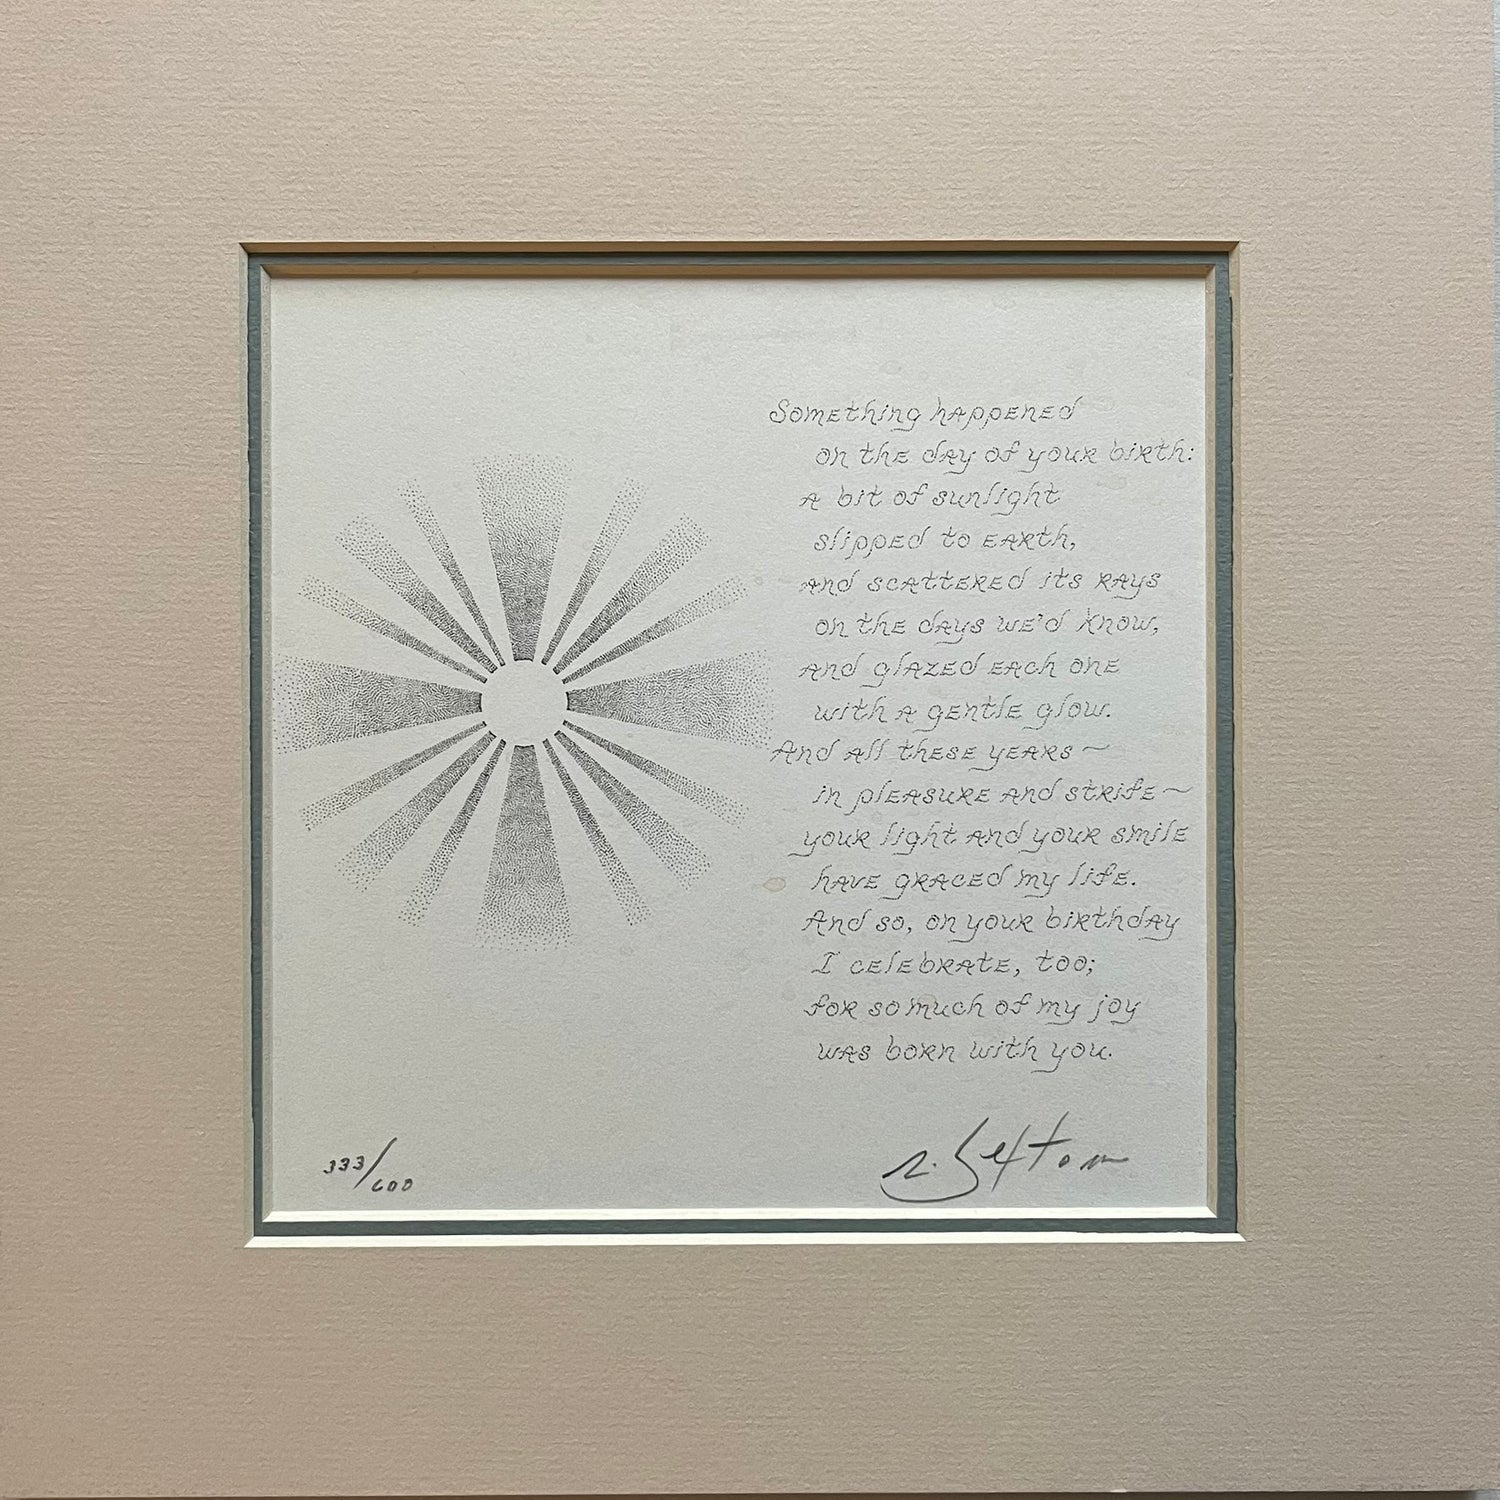 Something happened
on the day of your birth:
A bit of sunlight
slipped to earth,
And scattered its rays
on the days we'd know,
And glazed each one
with a gentle glow.
And all these years~
in pleasure and strife~
your light and your smile
have graced my life.
And so, on your birthday
I celebrate, too;
for so much of my joy
was born with you.
333/600
r. Sexton